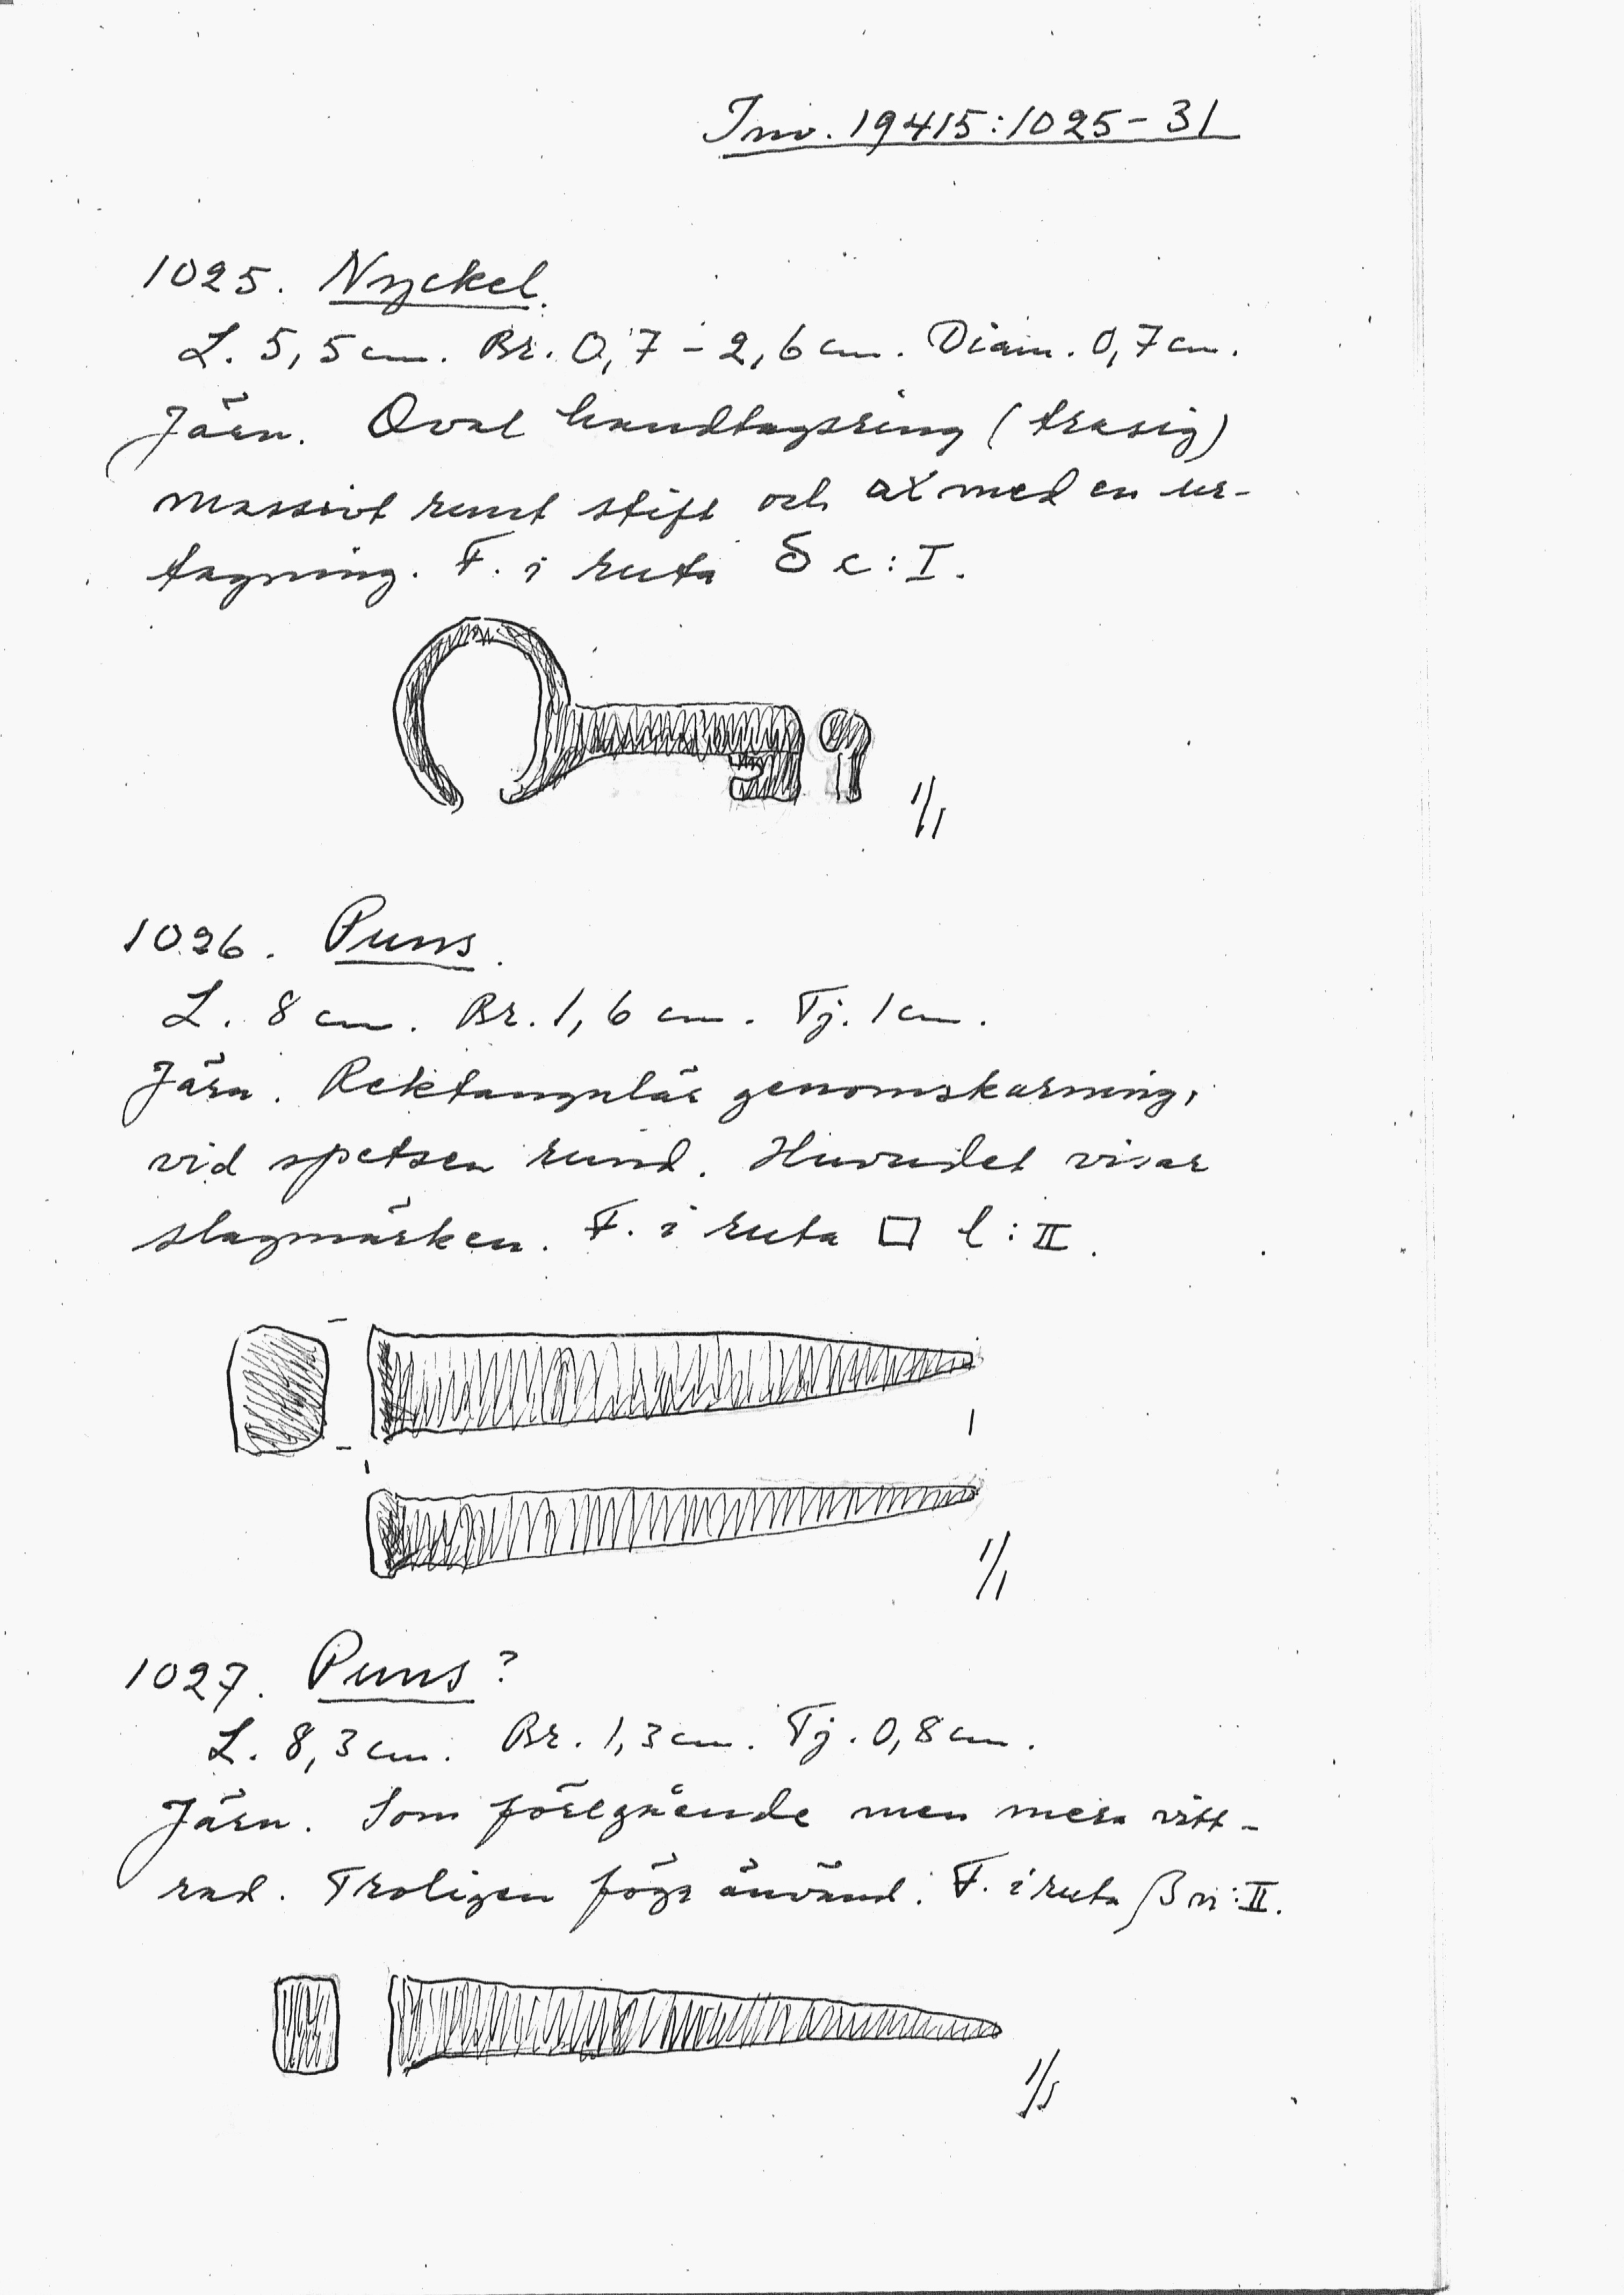 Inv. 19415:1025-31
1025. Nyckel.
L. 5,5 cm. Br. 0,7-2,6 cm. Diam. 0,7 cm.
Järn. Oval handtagsring (trasig)
massivt runt stift och ax med en ur-
tagning. F. i ruta δ c:I.
1/1
1026. Puns.
L. 8 cm. Br. 1,6 cm. Tj. 1 cm.
Järn. Rektangulär genomskärning,
vid spetsen rund. Huvudet visar
slagmärken. F. i ruta □ l:II.
1/1
1027. Puns?
L. 8,3 cm. Br. 1,3 cm. Tj. 0,8 cm.
Järn. Som föregående men mera vitt-
rad. Troligen föga använd. F. i ruta β n:II.
1/1